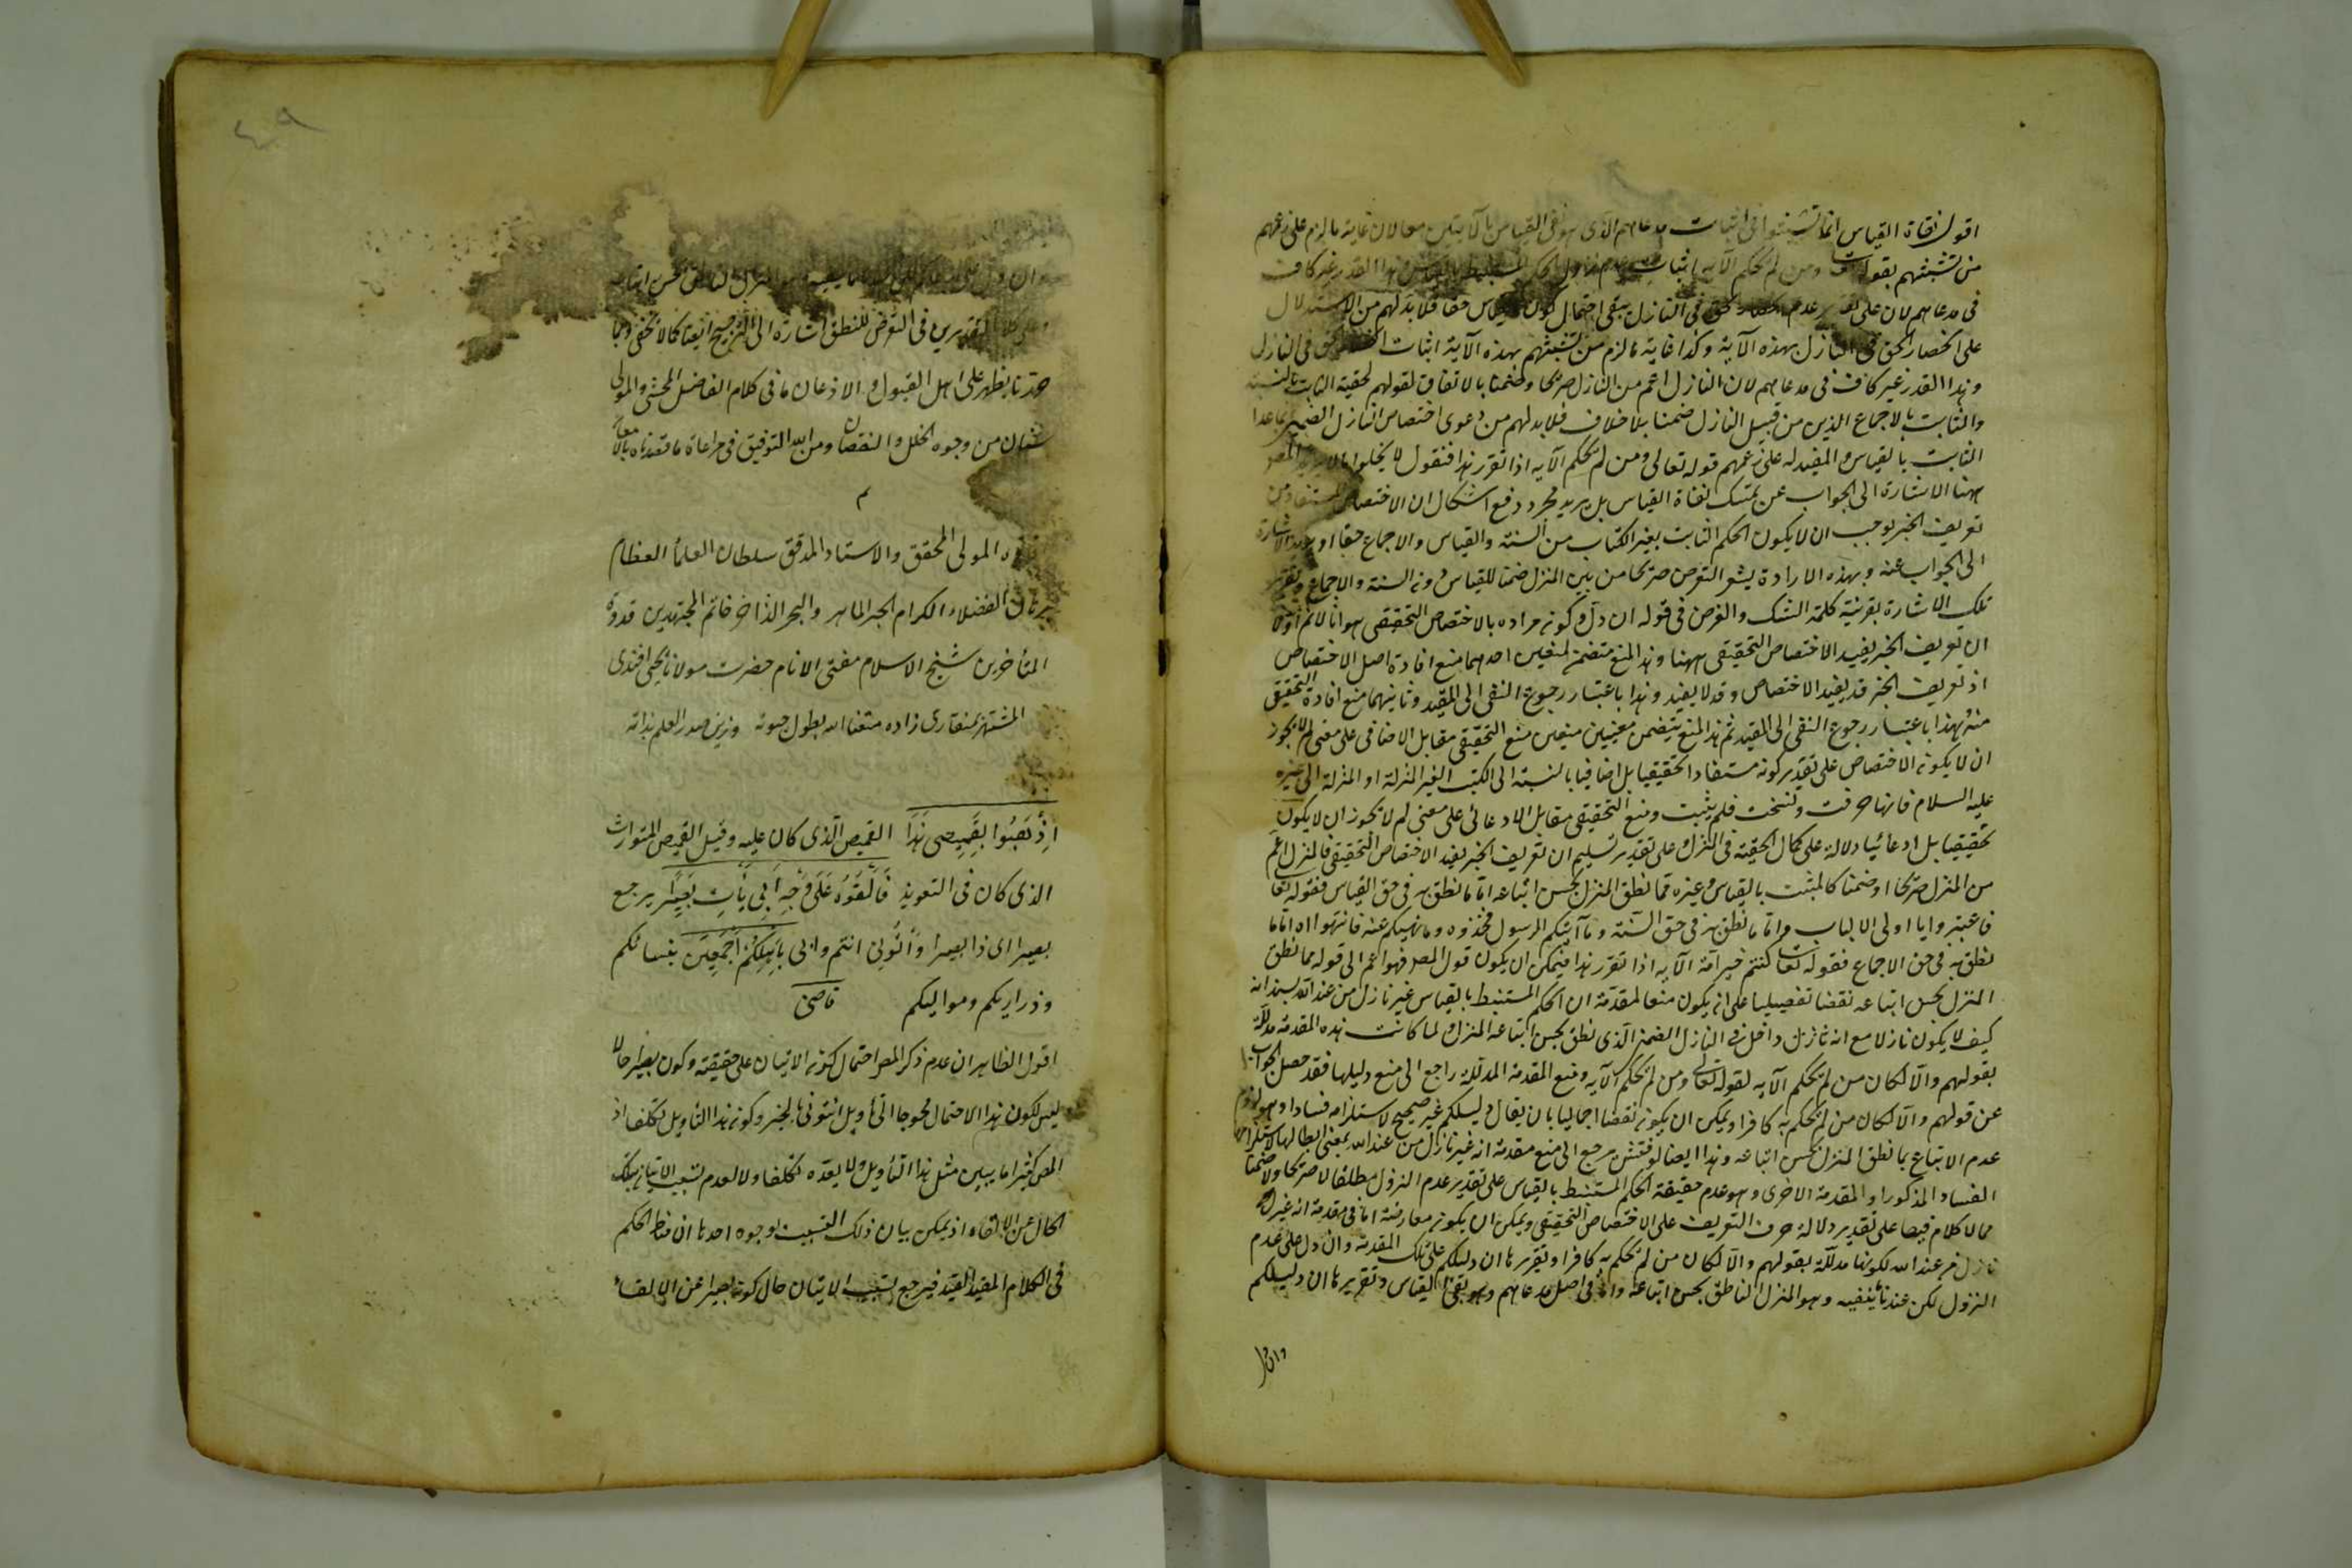 اقول نفاة القياس انما تشبثوا فى اثبات مدعاهم الذى هو نفى القياس بالآيتين معا لان غاية ما لزم على زعمهم
من تشبثهم بقوله تعا ومن لم يحكم الآية اثبات عدم نزول الحكم المستنبط بالقياس وهذا القدر غير كاف
فى مدعاهم لان على تقدير عدم انحصار الحق فى النازل يبقى احتمال كون القياس حقا فلا بد لهم من الاستدلال
على انحصار الحق فى النازل بهذه الآية وكذا غاية ما لزم من تشبثهم بهذه الآية اثبات انحصار الحق فى النازل
وهذا القدر غير كاف فى مدعاهم لان النازل اعم من النازل صريحا وضمنا بالاتفاق لقولهم لحقية الثابت بالسنة
والثابت بالاجماع الذين من قبيل النازل ضمنا بلا خلاف فلا بد لهم من دعوى اختصاص النازل الضمنى بما عدا
الثابت بالقياس والمفيد له على زعمهم قوله تعالى ومن لم يحكم الآية اذا تقرر هذا فنقول لا يخلو اما لا يريد المص
ههنا الاشارة الى الجواب عن تمسك نفاة القياس بل يريد مجرد دفع اشكال ان الاختصاص المستفاد من
تعريف الخبر يوجب ان لا يكون الحكم الثابت بغير الكتاب من السنة والقياس والاجماع حقا او يريد الاشارة
الى الجواب عنه وبهذه الارادة يشعر التعرض صريحا من بين المنزل ضمنا للقياس دون السنة والاجماع وتقرير
تلك الاشارة بقرينة كلمة الشك والفرض فى قوله ان دل وكونه مراده بالاختصاص التحقيقى هو انا لا نم اولا
ان تعريف الخبر يفيد الاختصاص التحقيقى ههنا وهذا المنع متضمن لمنعين احدهما منع افادة اصل الاختصاص
اذ تعريف الخبر قد يفيد الاختصاص وقد لا يفيد وهذا باعتبار رجوع النفى الى المقيد وثانيهما منع افادة التحقيقى
منه بهذا باعتبار رجوع النفى الى القيد ثم هذا المنع يتضمن معنيين منعين منع التحقيقى مقابل الاضافى على معنى لم لا يجوز
ان لا يكون الاختصاص على تقدير كونه مستفادا تحقيقيا بل اضافيا بالنسبة الى الكتب الغير المنزلة او المنزلة الى غيره
عليه السلام فانها حرفت ونسخت فلم يثبت ومنع التحقيقى مقابل الادعائى على معنى لم لا يجوز ان لا يكون
تحقيقيا بل ادعائيا دلالة على كمال الحقية فى المنزل وعلى تقدير تسليم ان تعريف الخبر يفيد الاختصاص التحقيقى فالمنزل اعم
من المنزل صريحا او ضمنا كالمثبت بالقياس وغيره مما نطق المنزل بحسن اتباعه اما ما نطق به فى حق القياس فقوله تعا
فاعتبروا يا اولى الالباب واما ما نطق به فى حق السنة وما آتيكم الرسول فخذوه وما نهيكم عنه فانتهوا اه واما ما
نطق به فى حق الاجماع فقوله تعا كنتم خير امة الآية اذا تقرر هذا فيمكن ان يكون قول المص فهو اعم الى قوله مما نطق
المنزل بحسن اتباعه نقضا تفصيليا على انه يكون منعا لمقدمة ان الحكم المستنبط بالقياس غير نازل من عند الله بسند انه
كيف لا يكون نازلا مع انه نازل داخل فى النازل الضمنى الذى نطق بحسن اتباعه المنزل ولما كانت هذه المقدمة مدللة
بقولهم والا لكان من لم يحكم الآية لقوله تعالى ومن لم يحكم الآية ومنع المقدمة المدللة راجع الى منع دليلها فقد حصل الجواب
عن قولهم والا لكان من لم يحكم به كافرا ويمكن ان يكون نقضا اجماليا بان يقال دليلكم غير صحيح لاستلزامه فسادا وهو لزوم
عدم الاتباع بما نطق المنزل بحسن اتباعه وهذا ايضا لو فتش مرجع الى منع مقدمة انه غير نازل من عند الله بمعنى ابطالها لاستلزامها
الفساد المذكور او المقدمة الاخرى وهو عدم حقيقة الحكم المستنبط بالقياس على تقدير عدم النزول مطلقا لا صريحا ولا ضمنا
مما لا كلام فيها على تقدير دلالة حرف التعريف على الاختصاص التحقيقى ويمكن ان يكون معارضة اما فى مقدمة انه غير
نازل من عند الله لكونها مدللة بقولهم والا لكان من لم يحكم به كافرا وتقريرها ان دليلكم على تلك المقدمة وان دل على عدم
النزول لكن عندنا ما ينفيه وهو المنزل الناطق بحسن اتباعه واما فى اصل مدعاهم وهو نفى القياس وتقريرها ان دليلكم
وان
وان دل على ينفيه وهو المنزل الناطق بحسن اتباعه
وعلى كلا التقديرين فى التعرض للنطق اشارة الى الترجيح ايضا كما لا يخفى وبما
حررنا يظهر على اهل القبول والاذعان ما فى كلام الفاضل المحشى والمولى
سنان من وجوه الخلل والنقصان ومن الله التوفيق فى مراعاة ما قصدناه بالامعان
م
المولى المحقق والاستاد المدقق سلطان العلماء العظام
برهان الفضلاء الكرام الحبر الماهر والبحر الذاخر خاتم المجتهدين قدوة
المتأخرين شيخ الاسلام مفتى الانام حضرت مولانا يحيى افندى
المشتهر بمنقارى زاده متعنا الله بطول حيوته وزين صدر العلم بذاته
اذهبوا بقميصى هذا القميص الذى كان عليه وقيل القميص المتوارث
الذى كان فى التعويذ فالقوه على وجه ابى يأت بصيرا يرجع
بصيرا اى ذا بصيرا وأتونى انتم وابى باهلكم اجمعين بنسائكم
وذراريكم ومواليكم قاضى
اقول الظاهر ان عدم ذكر المص احتمال كون الاتيان على حقيقته وكون بصيرا حالا
ليس لكون هذا الاحتمال محوجا الى تأويل ائتونى بالخبر وكون هذا التأويل تكلفا اذ
المص كثيرا ما يبين مثل هذا التأويل ولا يعده تكلفا ولا لعدم تسبب الاتيان بتلك
الحال عن الالقاء اذ يمكن بيان ذلك التسبب بوجوه احدها ان مناط الحكم
فى الكلام المقيد القيد فيرجع تسبب الاتيان حال كونه بصيرا عن الالقاء